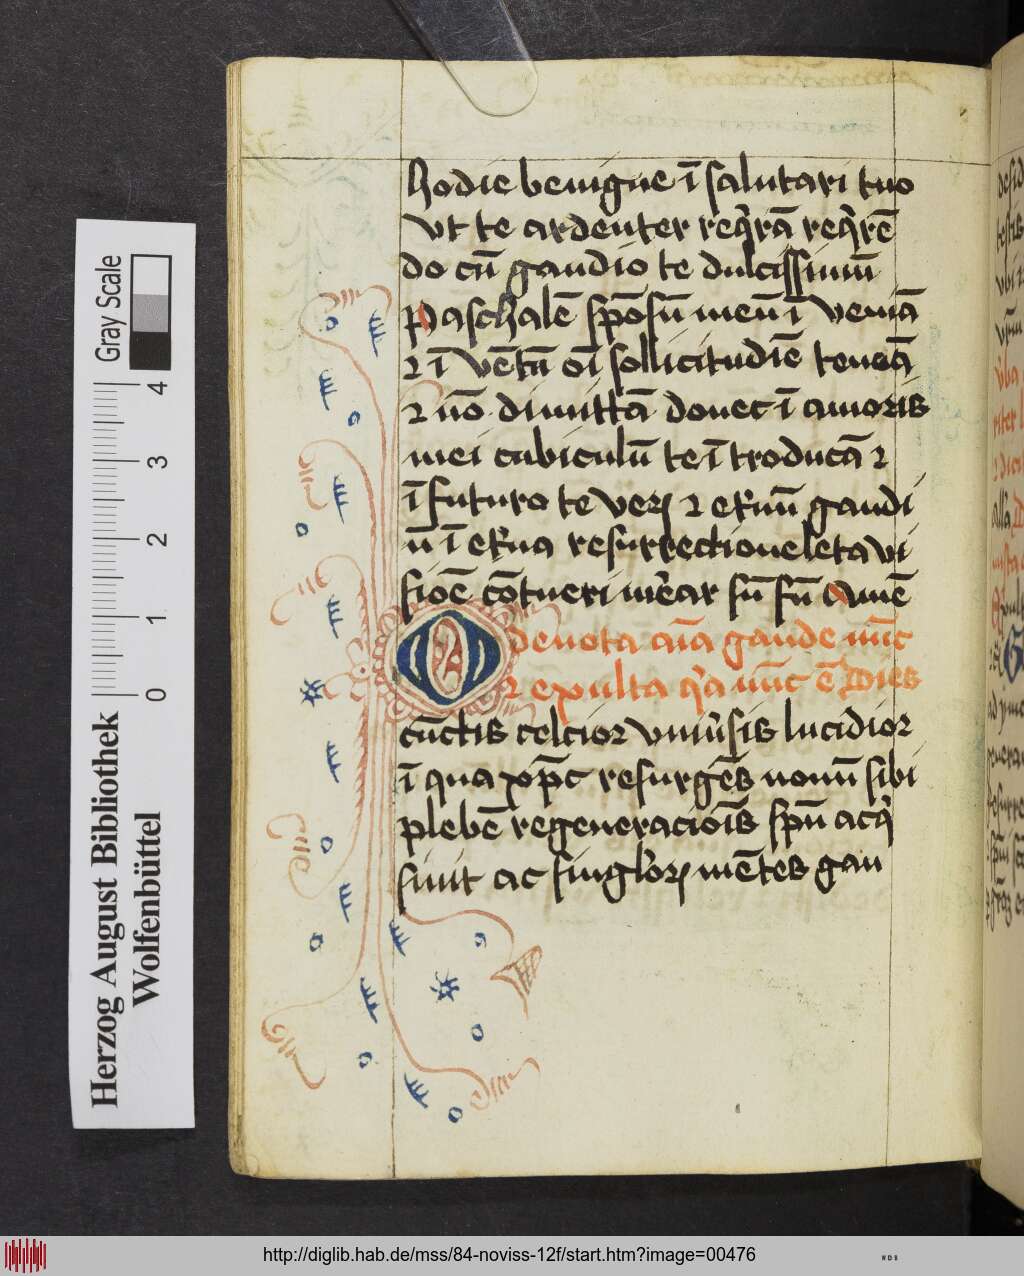 hodie benigne ī salutari tuo
vt te ardenter reqͥrā reqͥrē
do cū gaudio te dulcissimū
Paschalē spōsū meū ī veniā
⁊ ī vētū oī sollicitudīe teneā
⁊ nō dimittā donec ī amoris
mei cubiculū te ītroducā ⁊
ī futuro te verꝝ ⁊ et'nū gaudi
ū ī et'na resurrectione leta vi
siōe cōtueri m'ear sū fū Amē
O deuota aīa gaude nūc
⁊ exulta qͣa nūc ē Dies
cūctis celcior vniu'sis lucidior
ī qua xp̄c resurgēs nouū sibi
plebē regeneracioīs spū acqͥ
siuit ac singlorꝝ mētes gau
Gray Scale
4
3
2
1
0
Herzog August Bibliothek
Wolfenbüttel
http://diglib.hab.de/mss/84-noviss-12f/start.htm?image=00476